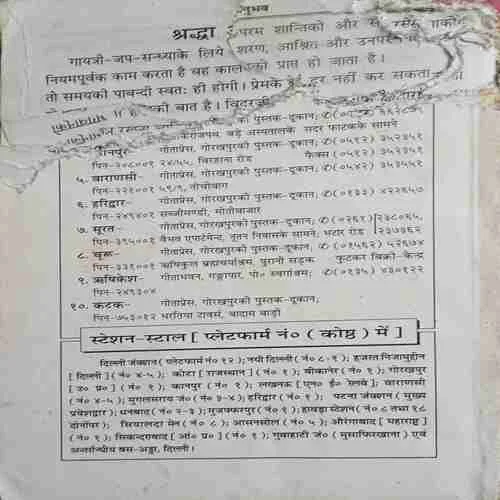 नुभव
श्रद्धा परम शान्तिको और
गायत्री-जप-सन्ध्याके लिये शरण, आश्रित और
नियमपूर्वक काम करता है वह काल को प्राप्त हो जाता है।
तो समयकी पाबन्दी स्वतः ही होगी। प्रेमके दूर नहीं कर सकता
की बात है।
बड़े अस्पतालके सदर फाटकके सामने
गीताप्रेस, गोरखपुरकी पुस्तक-दूकान; ✆ (०५१२) ३५२३५१
पिन-२०८००१ २४/५५, बिरहाना रोड फैक्स (०५१२) ३५२३५१
५. वाराणसी- गीताप्रेस, गोरखपुरकी पुस्तक-दूकान; ✆ (०५४२) ३५३५५१
पिन-२२१००१ ५९/९, नीचीबाग
६. हरिद्वार- गीताप्रेस, गोरखपुरकी पुस्तक-दूकान; ✆ (०१३३) ४२२६५७
पिन-२४९४०१ सब्जीमण्डी, मोतीबाजार
७. सूरत- गीताप्रेस, गोरखपुरकी पुस्तक-दूकान; ✆ (०२६१) २३८०६५,
पिन-३९५००१ वैभव एपार्टमेन्ट, नूतन निवासके सामने, भटार रोड २३७३६२
८. चूरू- गीताप्रेस, गोरखपुरकी पुस्तक-दूकान, ✆ (०१५६२) ५२६७४
पिन-३३१००१ ऋषिकुल ब्रह्मचर्याश्रम, पुरानी सड़क फुटकर बिक्री-केन्द्र
९. ऋषिकेश- गीताभवन, गङ्गापार, पो० स्वर्गाश्रम; ✆ (०१३५) ४३०१२२
पिन-२४९३०४
१०. कटक- गीताप्रेस, गोरखपुरकी पुस्तक-दूकान;
पिन-७५३०१२ भरतिया टावर्स, बादाम बाड़ी
स्टेशन-स्टाल [ प्लेटफार्म नं० ( कोष्ठ ) में ]
दिल्ली जंक्शन ( प्लेटफार्म नं० १२ ); नयी दिल्ली ( नं० ८-९ ); हजरत निजामुद्दीन
[ दिल्ली ] ( नं० ४-५ ); कोटा [ राजस्थान ] ( नं० १ ); बीकानेर ( नं० १ ); गोरखपुर
[ उ० प्र० ] ( नं० १ ); कानपुर ( नं० १ ); लखनऊ [ एन० ई० रेलवे ]; वाराणसी
( नं० ४-५ ); मुगलसराय जं० ( नं० ३-४ ); हरिद्वार ( नं० १ ); पटना जंक्शन ( मुख्य
प्रवेशद्वार ); धनबाद ( नं० २-३ ); मुजफ्फरपुर ( नं० १ ); हावड़ा स्टेशन ( नं० ८ तथा १८
दोनोंपर ); सियालदा मेन ( नं० ८ ); आसनसोल ( नं० ५ ); औरंगाबाद [ महाराष्ट्र ]
( नं० १ ); सिकन्दराबाद [ आं० प्र० ] ( नं० १ ); गुवाहाटी जं० ( मुसाफिरखाना ) एवं
अन्तर्राज्यीय बस-अड्डा, दिल्ली।